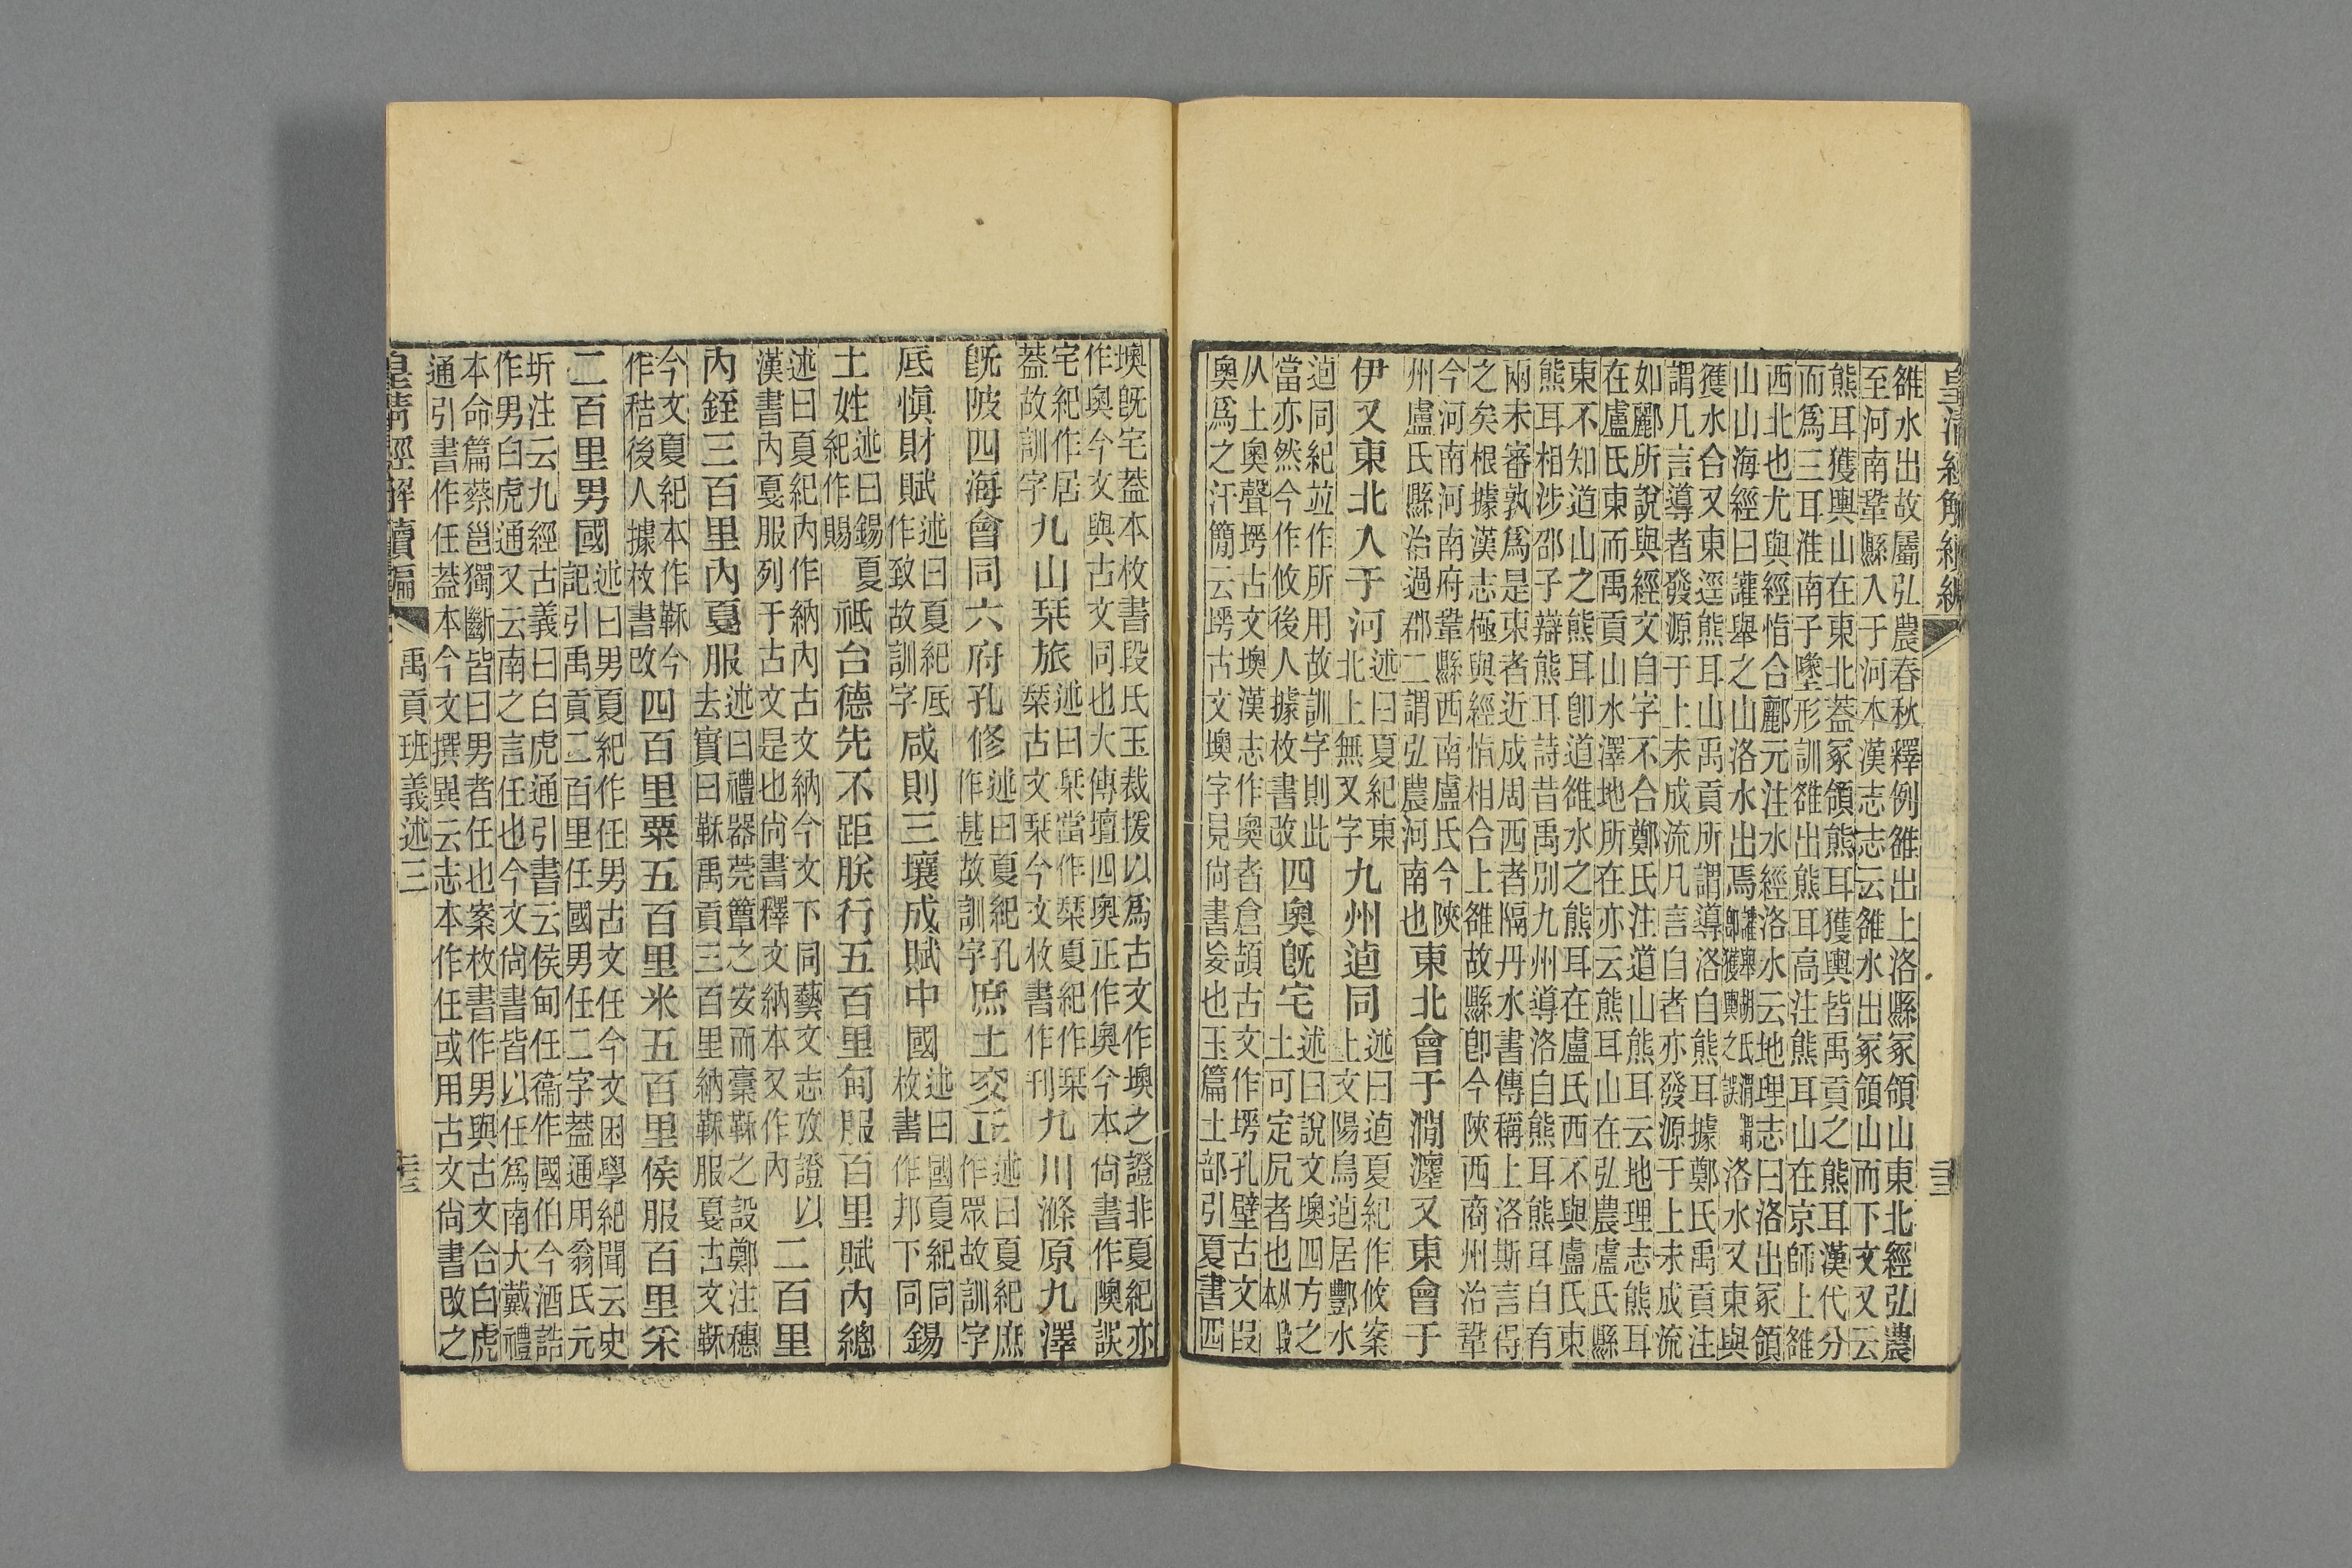 皇清經解續編
雒水出故屬弘農春秋釋例雒出上洛縣冢領山東北經弘農
至河南鞏縣入于河本漢志志云雒水出冢領山而下文又云
熊耳獲輿山在東北蓋冢領熊耳獲輿皆禹貢之熊耳漢代分
而爲三耳淮南子墬形訓雒出熊耳高注熊耳山在京師上雒
西北也尤與經恉合酈元注水經洛水云地理志曰洛出冢領
山山海經曰讙舉之山洛水出焉讙舉胡氏渭謂卽獲輿之誤洛水又東與
獲水合又東逕熊耳山禹貢所謂導洛自熊耳據鄭氏禹貢注
謂凡言導者發源于上未成流凡言自者亦發源于上未成流
如酈所說與經文自字不合鄭氏注道山熊耳云地理志熊耳
在盧氏東而禹貢山水澤地所在亦云熊耳山在弘農盧氏縣
東不知道山之熊耳卽道雒水之熊耳在盧氏西不與盧氏東
熊耳相涉邵子辯熊耳詩昔禹別九州導洛自熊耳熊耳自有
兩未審孰爲是東者近成周西者隔丹水書傳稱上洛斯言得
之矣根據漢志極與經恉相合上雒故縣卽今陝西商州治鞏
今河南河南府鞏縣西南盧氏今陝
州盧氏縣治過郡二謂弘農河南也
東北會于澗瀍又東會于
伊又東北入于河
述曰夏紀東
北上無又字
九州逌同
述曰逌夏紀作攸案
上文陽鳥逌居酆水
逌同紀竝作所用故訓字則此
當亦然今作攸後人據枚書改
四奥旣宅
述曰說文墺四方之
土可定尻者也
从土奥聲㙸古文墺漢志作奥者倉頡古文作㙸孔壁古文叚
奥爲之汗簡云㙸古文墺字見尚書妄也玉篇土部引夏書四
墺旣宅蓋本枚書段氏玉裁援以爲古文作墺之證非夏紀亦
作奥今文與古文同也大傳壇四奥正作奥今本尚書作隩誤
宅紀作居
蓋故訓字
九山栞旅
述曰栞當作琹夏紀作栞
琹古文栞今文枚書作刊
九川滌原九澤
旣陂四海會同六府孔修
述曰夏紀孔
作甚故訓字
庶土交正
述曰夏紀庶
作眾故訓字
厎愼財賦
述曰夏紀厎
作致故訓字
咸則三壤成賦中國
述曰國夏紀同
枚書作邦下同
錫
土姓
述曰錫夏
紀作賜
祗台德先不距朕行五百里甸服百里賦內總
述曰夏紀內作納內古文納今文下同藝文志攷證以
漢書內戛服列于古文是也尚書釋文納本又作內
二百里
內銍三百里內戛服
述曰禮器莞簟之安而稾鞂之設鄭注穗
去實曰鞂禹貢三百里納鞂服戛古文鞂
今文夏紀本作鞂今
作秸後人據枚書改
四百里粟五百里米五百里侯服百里采
二百里男國
述曰男夏紀作任男古文任今文困學紀聞云史
記引禹貢二百里任國男任二字蓋通用翁氏元
圻注云九經古義曰白虎通引書云侯甸任衞作國伯今酒誥
作男白虎通又云南之言任也今文尚書皆以任爲南大戴禮
本命篇蔡邕獨斷皆曰男者任也案枚書作男與古文合白虎
通引書作任蓋本今文撰異云志本作任或用古文尚書改之
皇清經解續編
禹貢班義述三